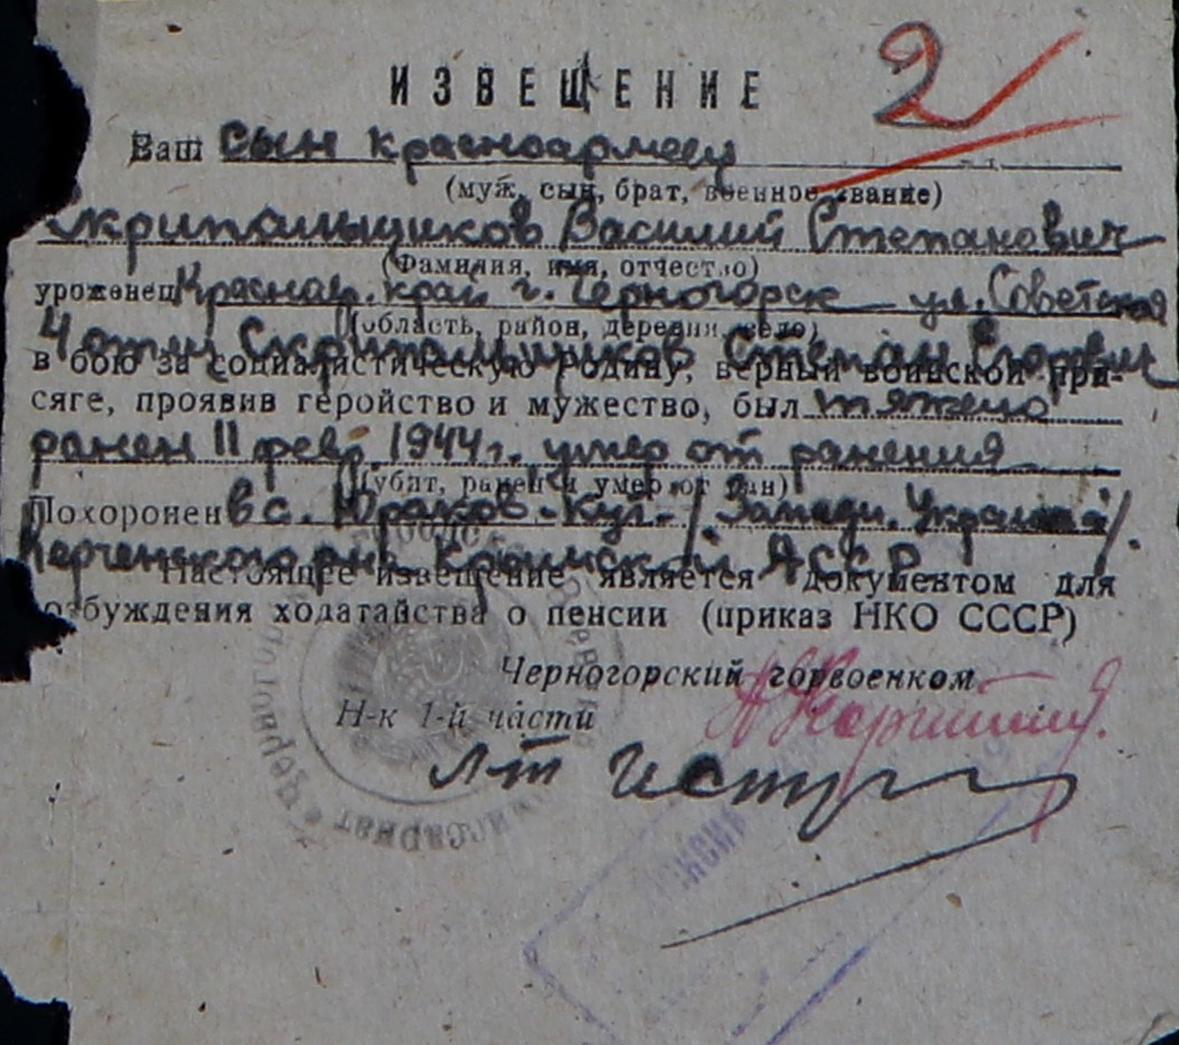 2
ИЗВЕЩЕНИЕ
Ваш сын красноармеец
(муж, сын, брат, военное звание)
Скрипальщиков Василий Степанович
(Фамилия, имя, отчество)
уроженец Краснояр. край г. Черногорск ул. Советская
(область, район, деревня, село)
4 отец Скрипальщиков Степан Егорович
в бою за социалистическую Родину, верный воинской при-
сяге, проявив геройство и мужество, был тяжело
ранен 11 февр. 1944 г. умер от ранения
(убит, ранен и умер от ран)
Похоронен в с. Юраков-Кут /Западн. Украина/.
Керченского р-на Крымской АССР
Настоящее извещение является документом для
возбуждения ходатайства о пенсии (приказ НКО СССР)
Черногорский горвоенком
Н-к 1-й части
л-т